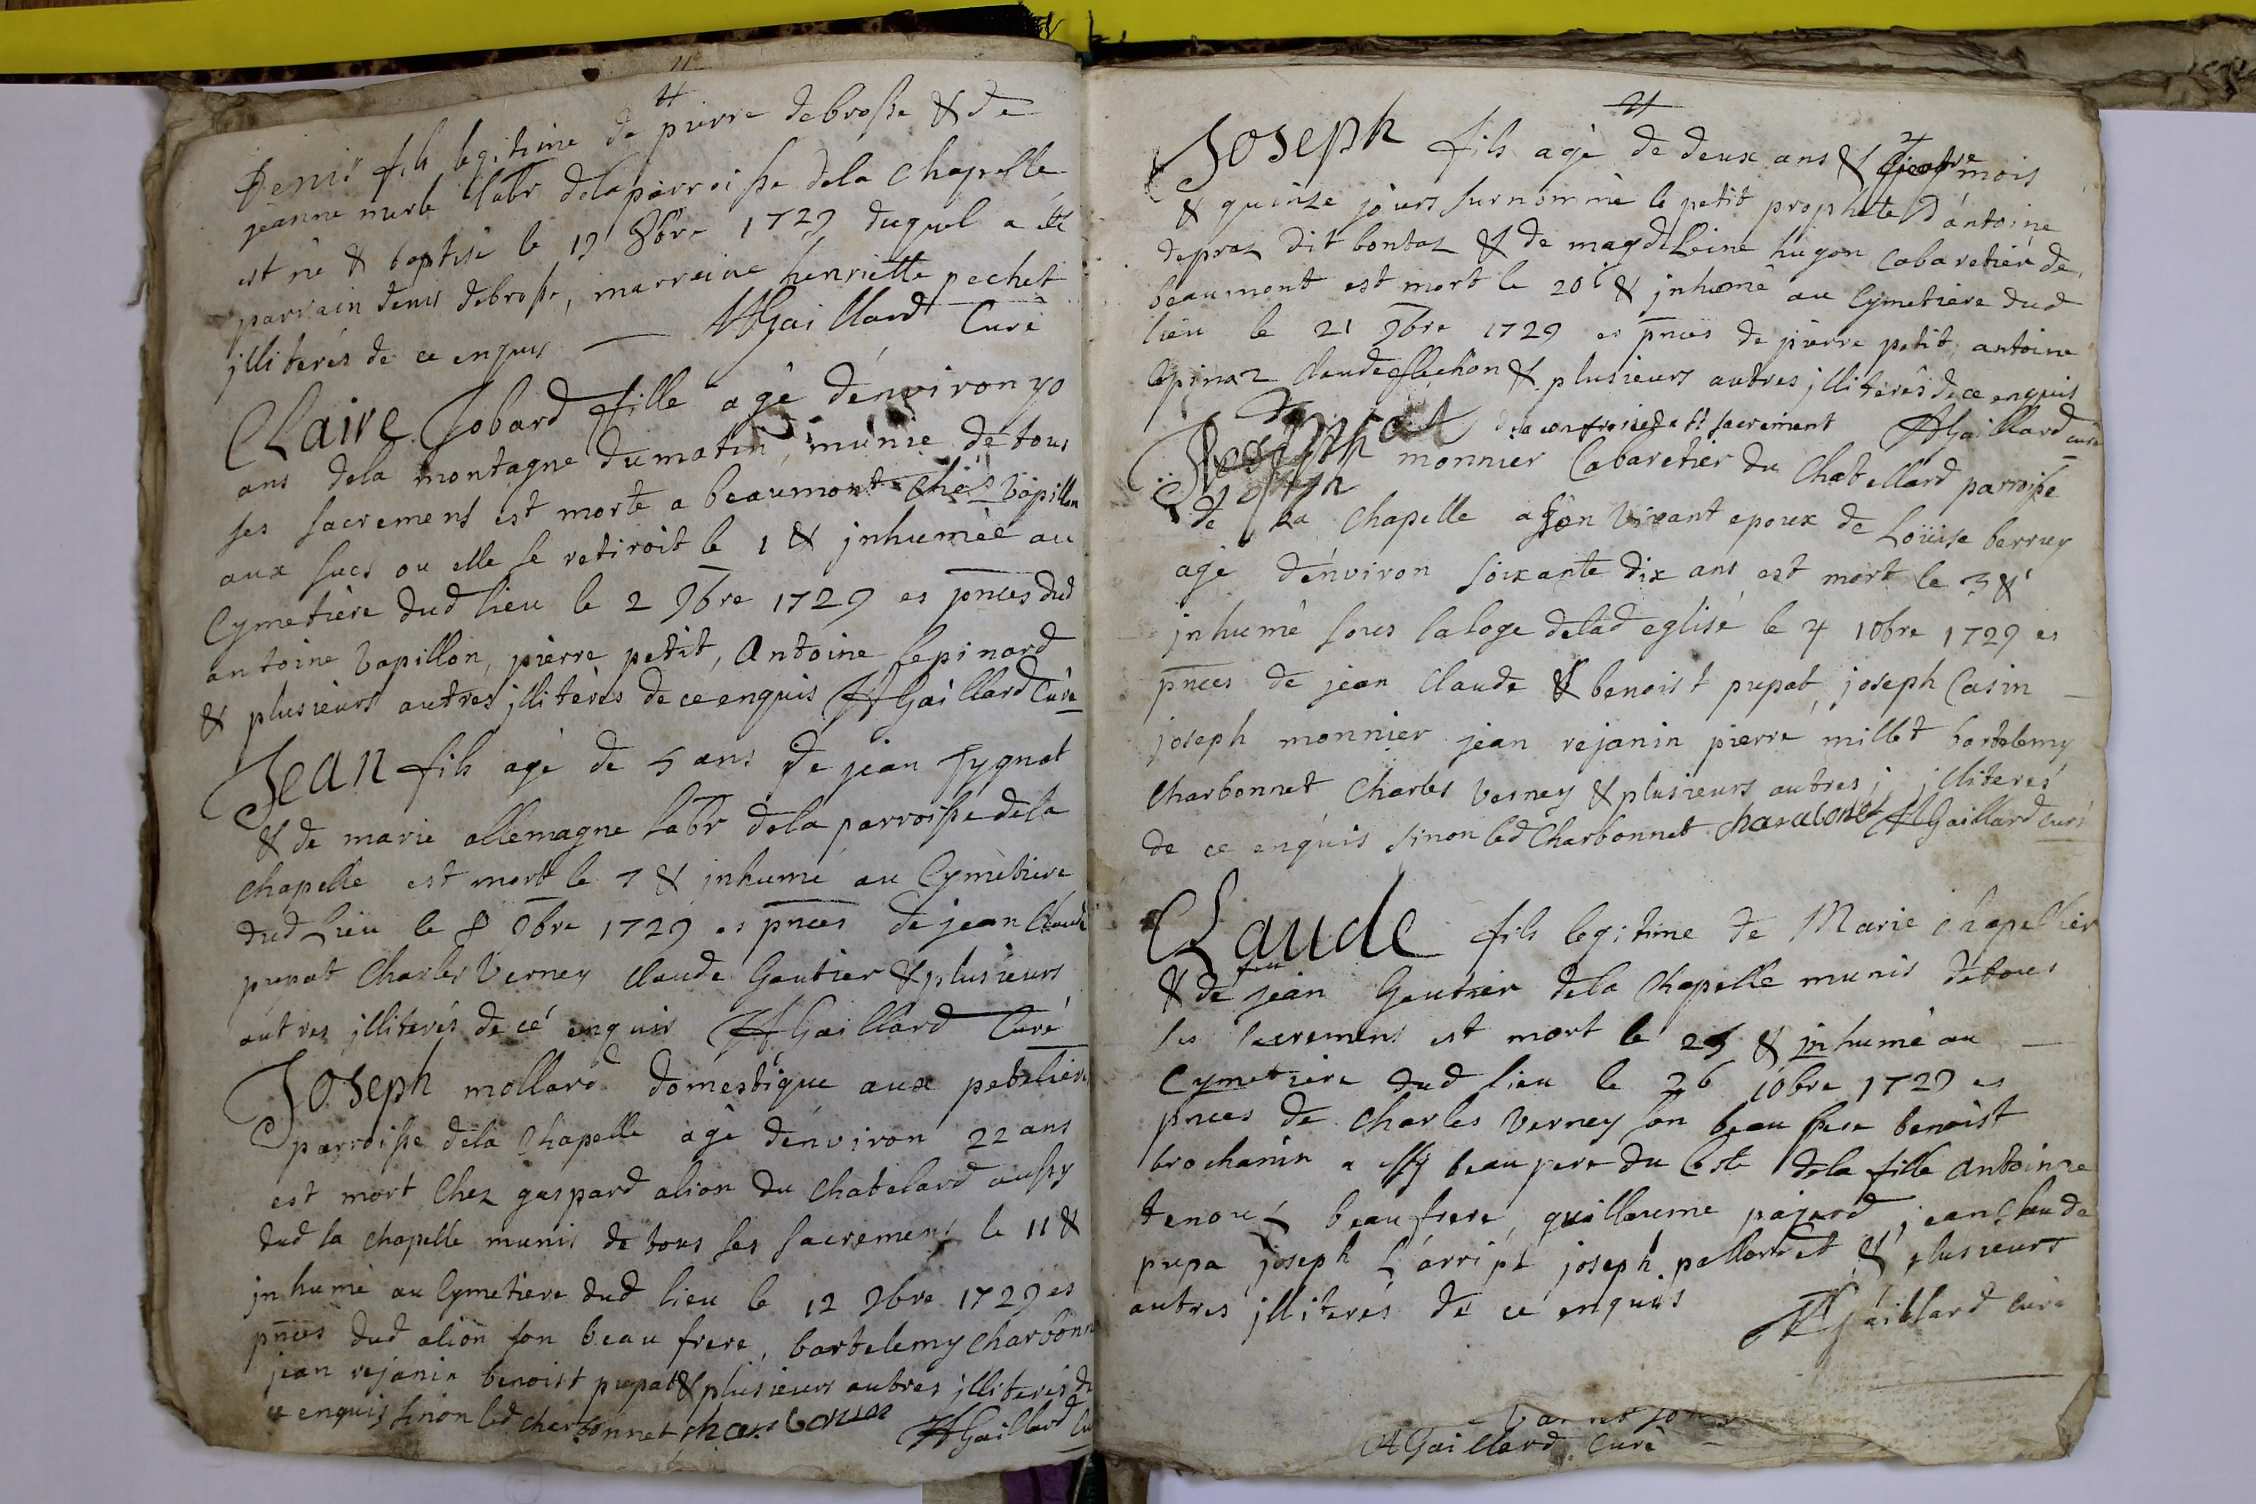 Denis fils legitime de pierre debrosse & de
jeanne merle labr dela parroisse dela chapelle
est né & baptisé le 19 8bre 1729 duquel a été
parrain denis debrosse, marreine henriette pechet
illiterés de ce enquis AGaillard Curé
Claire Jobard fille agé d'environ 70
ans dela montagne du matin, munie de tous
ses sacremens est morte a beaumont chés Vapillon
aux sucs ou elle se retiroit le 1 & jnhumèe au
Cymetiere dud lieu le 2 9bre 1729 es pnces dud
antoine Vapillon, pierre petit, Antoine lepinard
& plusieurs autres jlliterés de ce enquis AGaillard Curé
Jean fils agé de 5 ans de jean Fygnat
& de marie allemagne labr dela parroisse dela
chapelle est mort le 7 & jnhumé au Cymetiere
dud Lieu le 8 9bre 1729 es pnces de jean Claude
pupat Charles Verney Claude Gautier & plusieurs
autres jlliterés de cé enquis AGaillard Curé
Joseph mollard domestique aux petelieres
parroisse dela Chapelle agé d'environ 22 ans
est mort Chez gaspard alion du Chatelard aussy
dud la chapelle munis de tous ses sacremens le 11 &
jnhumé au Cymetiere dud lieu le 12 9bre 1729 es
pnces dud alion son beau frere, bartelemy charbonn
jean rejanin benoist pupat & plusieurs autres jlliterés de
ce enquis sinon led charbonnet charbonn AGaillard Cu
Joseph fils agé de deux ans & quatre mois
& quinze jours surnommé le petit prophete d'antoine
depraz dit bontaz & de magdeleine hugon Cabaretier de
beaumont est mort le 20 & jnhumé au Cymetiere dud
lieu le 21 9bre 1729 es pnces de pierre petit, antoine
lepinaz Claude flechon & plusieurs autres jlliterés de ce enquis
de la confrerie de st sacrement AGaillard curé
Joseph monnier Cabaretier du Chatellard parroisse
de la Chapelle a son vivant epoux de Loüise berruy
agé d'environ soixante dix ans est mort le 3 &
jnhumé sous la loge delad eglise le 4 10bre 1729 es
pnces de jean Claude & benoist pupat, joseph Casin
joseph monnier jean rejanin pierre millet bartelemy
Charbonnet Charles verney & plusieurs autres jlliterés
de ce enquis sinon led Charbonnet charabonet AGaillard curé
Claude fils legitime de Marie chapellier
& de feu jean Gautier dela Chapelle munis de tous
ses sacremens est mort le 25 & jnhumé au
Cymetiere dud lieu le 26 10bre 1729 es
pnces de Charles verney son beau frere benoist
brochanin a beau pere du dela fille Antoinne
beau frere, guillaume pajard, jean Claude
pupa joseph Larripé joseph pallandet & plusieurs
autres jlliterés de ce enquis AGaillard curé
AGaillard Curé